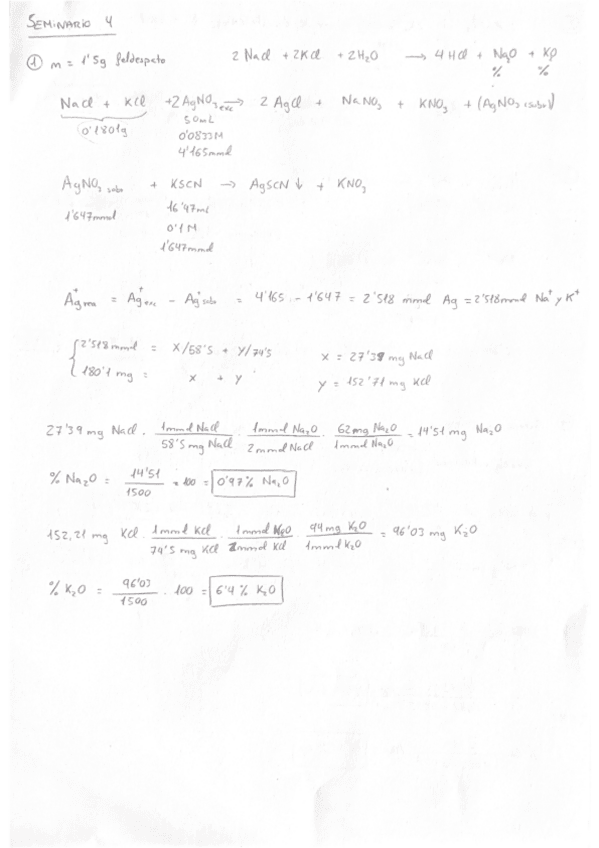 SEMINARIO 4
① m = 1'5g feldespato 2 NaCl + 2KCl + 2H2O → 4 HCl + Na2O + K2O
% %
NaCl + KCl + 2 AgNO3 exc → 2 AgCl + NaNO3 + KNO3 + (AgNO3 sobra)
0'1801g 50mL
0'0833M
4'165mmol
AgNO3 sobr + KSCN → AgSCN ↓ + KNO3
1'647mmol 16'47ml
0'1 M
1'647mmol
Ag+ rea = Ag+ exc - Ag+ sobr = 4'165 - 1'647 = 2'518 mmol Ag = 2'518mmol Na+ y K+
{ 2'518 mmol = X/58'5 + Y/74'5 x = 27'39 mg NaCl
180'1 mg = x + y y = 152'71 mg KCl
27'39 mg NaCl · 1mmol NaCl / 58'5 mg NaCl · 1mmol Na2O / 2mmol NaCl · 62mg Na2O / 1mmol Na2O = 14'51 mg Na2O
% Na2O = 14'51 / 1500 · 100 = 0'97% Na2O
152,21 mg KCl · 1mmol KCl / 74'5 mg KCl · 1mmol K2O / 2mmol KCl · 94mg K2O / 1mmol K2O = 96'03 mg K2O
% K2O = 96'03 / 1500 · 100 = 6'4% K2O